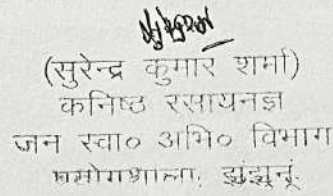 (सुरेन्द्र कुमार शर्मा)
कनिष्ठ रसायनज्ञ
जन स्वा० अभि० विभाग
प्रयोगशाला, झुंझुनूं